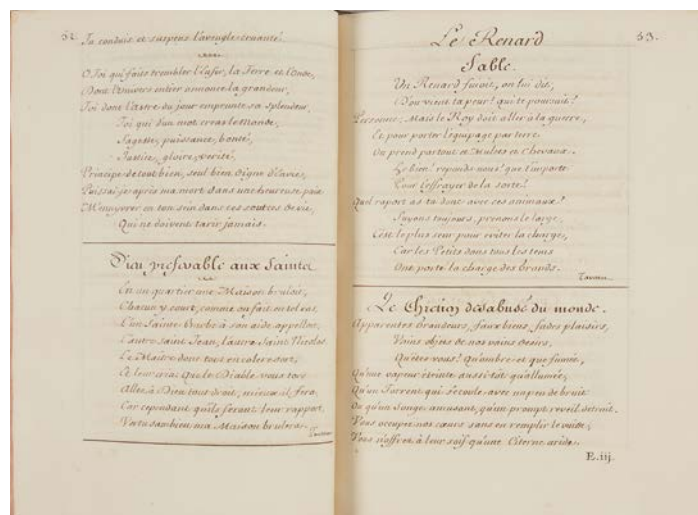 52.
Tu conduis et surprens l'aveugle cruauté.
O Toi qui faits trembler l'Enfer, la Terre et l'Onde,
Dont l'univers entier annonce la grandeur,
Toi dont l'Astre du jour emprunte sa splendeur,
Toi qui d'un mot creas le Monde,
Sagesse, puissance, bonté,
Justice, gloire, verité,
Principe de tout bien, seul bien digne d'envie,
Puissai-je après ma mort dans une heureuse paix
M'enyvrer en ton sein dans ces sources de vie,
Qui ne doivent tarir jamais.
Dieu preferable aux Saints
En un quartier une Maison bruloit,
Chacun y court, comme on fait en tel cas,
L'un Sainte Barbe à son aide appelloit,
L'autre Saint Jean, l'autre Saint Nicolas.
Le Maitre dont tout en colere sort,
Ce leur cria: Que le Diable vous
Allez à Dieu tout droit, mieux il fera,
Car cependant qu'ils feront leur rapport,
Vertusambieu ma Maison brulera.
53.
Le Renard
Fable.
Un Renard fuioit, on lui dit,
D'ou vient ta peur? qui te poursuit?
Personne; Mais le Roy doit aller à la guerre,
Et pour porter l'equipage par terre
On prend partout et Mulets et Chevaux.
Hé bien! reponds nous! que t'importe
Pour t'effrayer de la sorte?
Quel raport as tu donc avec ces animaux?
Fuyons toujours, prenons le large,
C'est le plus seur pour eviter la charge,
Car les Petits dans tous les tems
Ont porté la charge des Grands.
Le Chretien désabusé du monde.
Apparentes Grandeurs, faux biens, fades plaisirs,
Vains objets de nos vains desirs,
Qu'étes-vous! Qu'ombre et que fumée,
Qu'une vapeur éteinte aussi-tôt qu'allumée,
Qu'un Torrent qui s'ecoule avec un peu de bruit
Ou qu'un Songe amusant, qu'un prompt reveil détruit.
Vous occupez nos cœurs sans en remplir le vuide,
Vous n'offrez à leur soif qu'une Citerne aride.
E.iij.